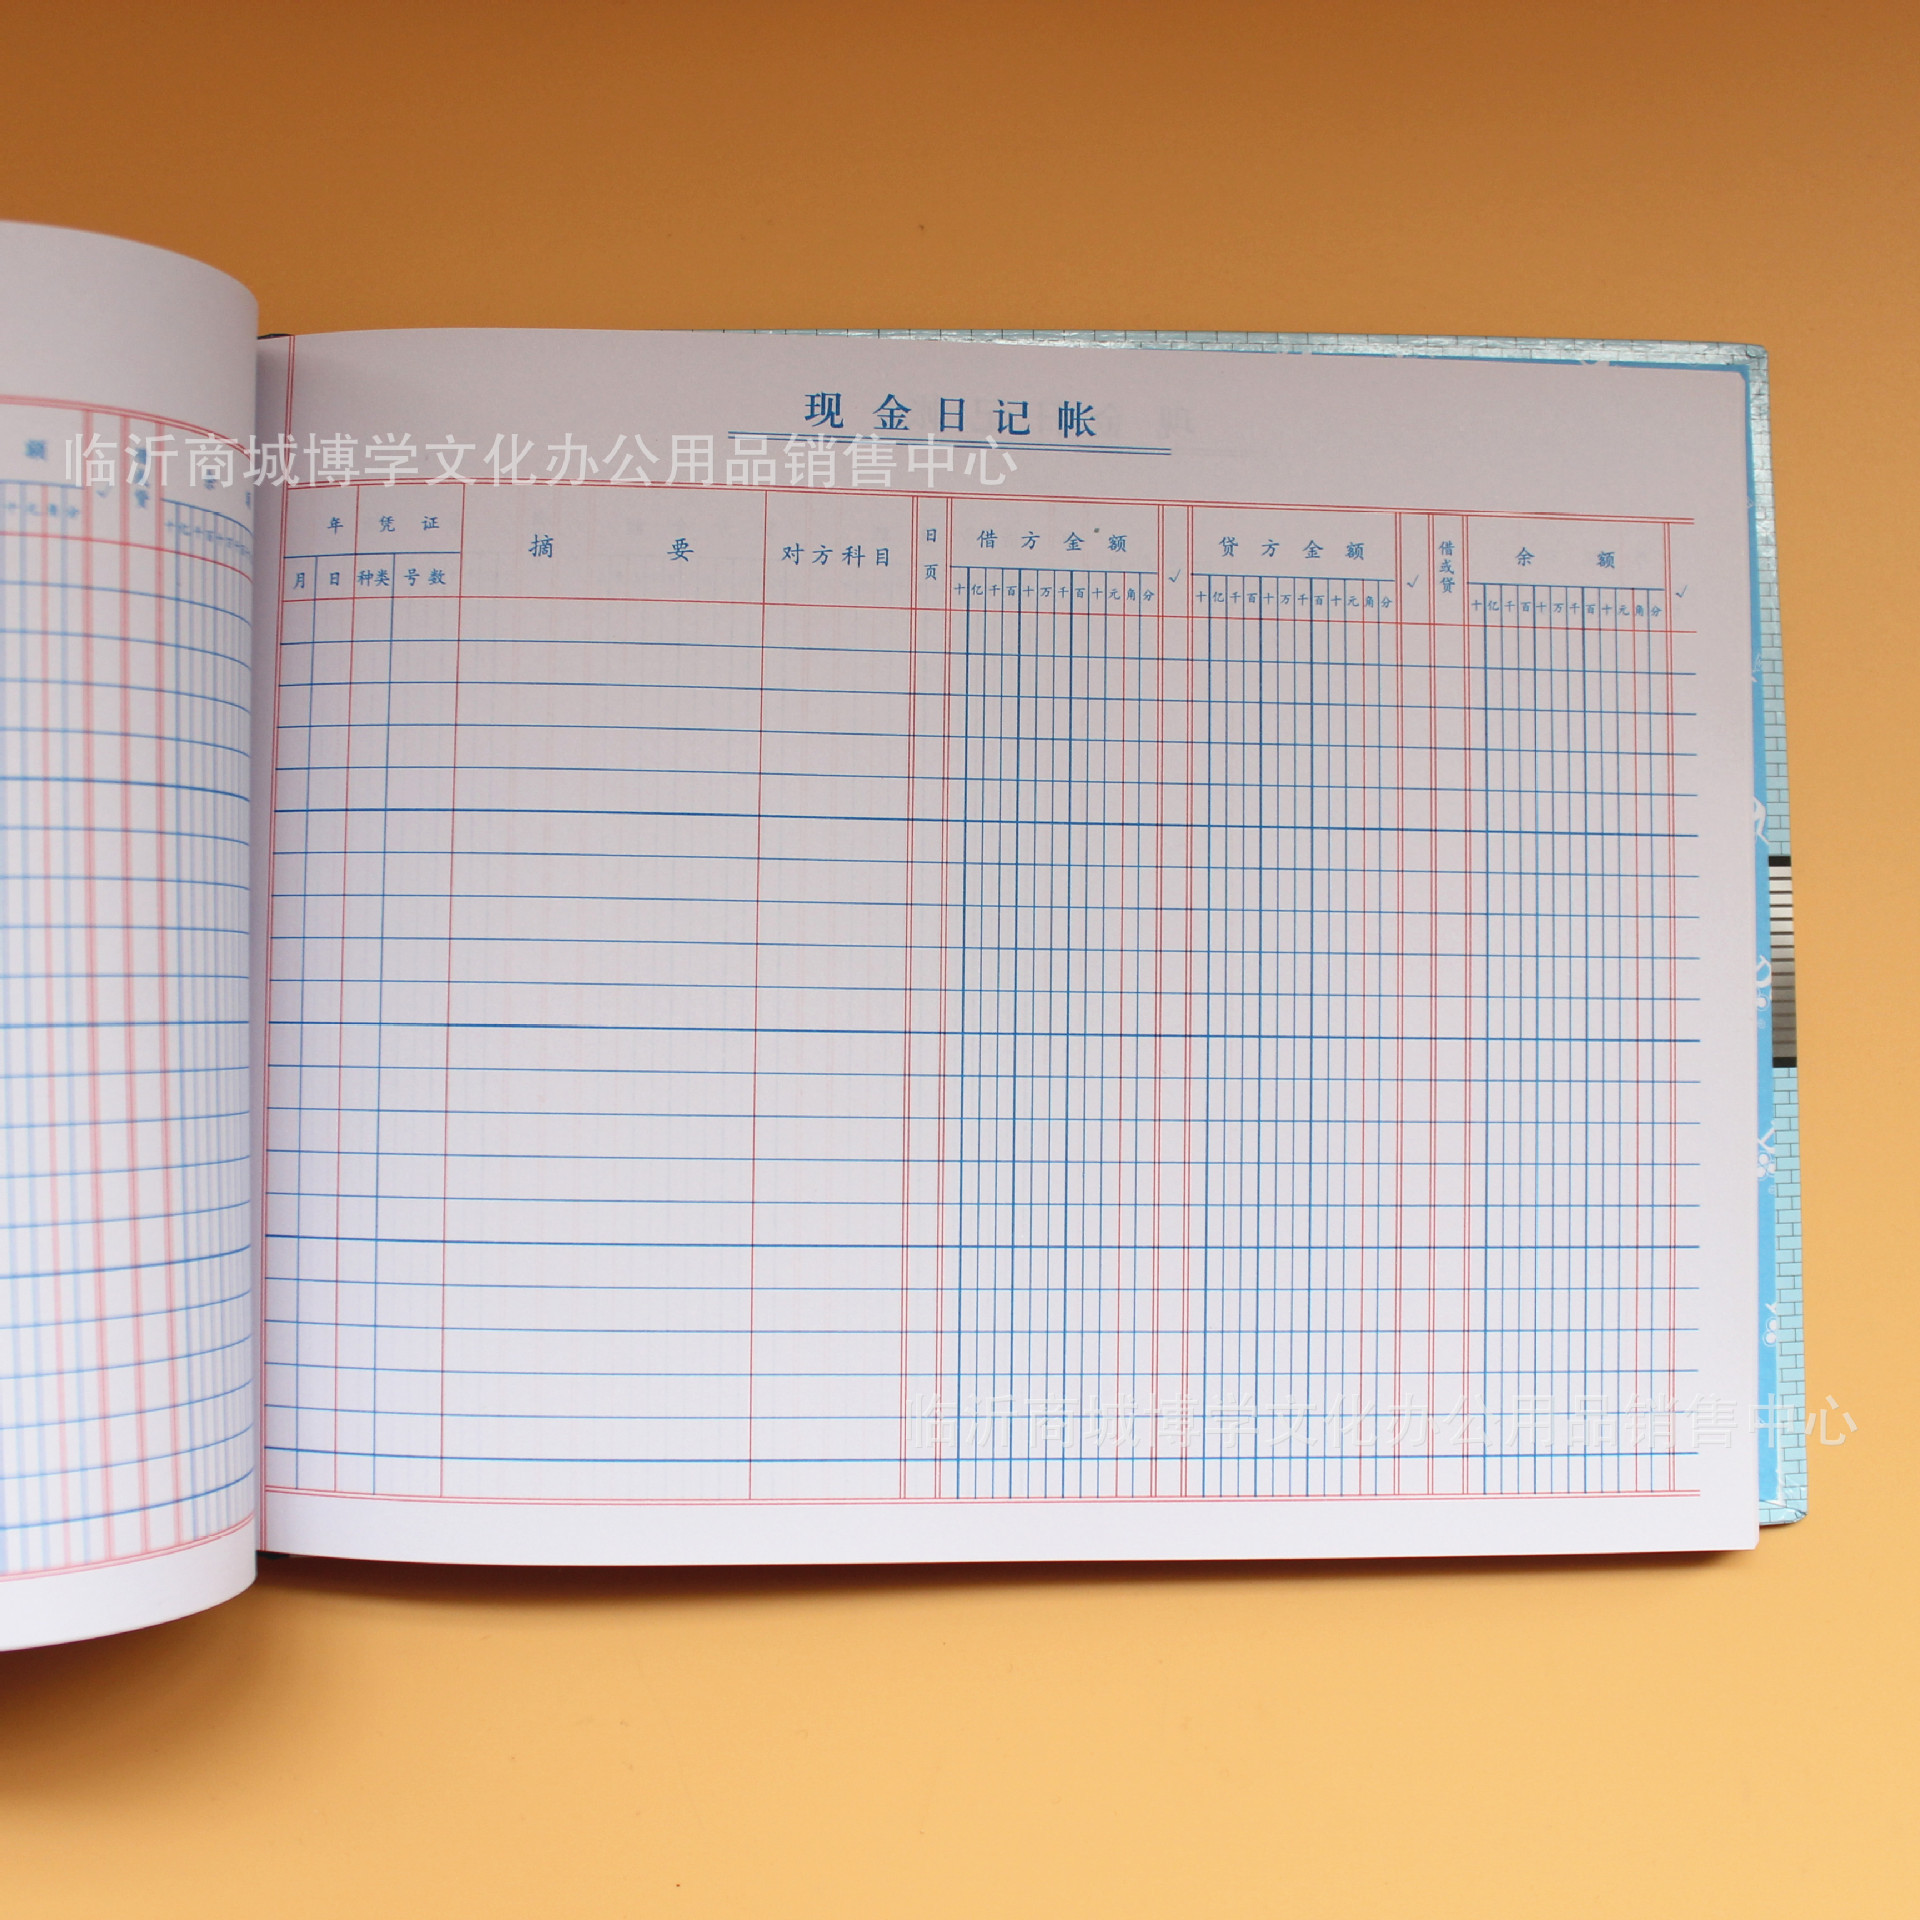 现金日记帐
临沂商城博学文化办公用品销售中心
年 凭证 摘要 对方科目 日页 借方金额 √ 贷方金额 √ 借或贷 余额 √
月 日 种类 号数 十亿千百十万千百十元角分 十亿千百十万千百十元角分 十亿千百十万千百十元角分
临沂商城博学文化办公用品销售中心